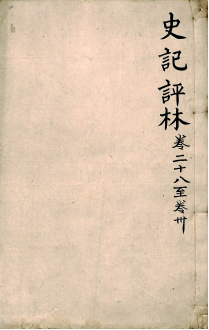 史記評林卷二十八至卷卅